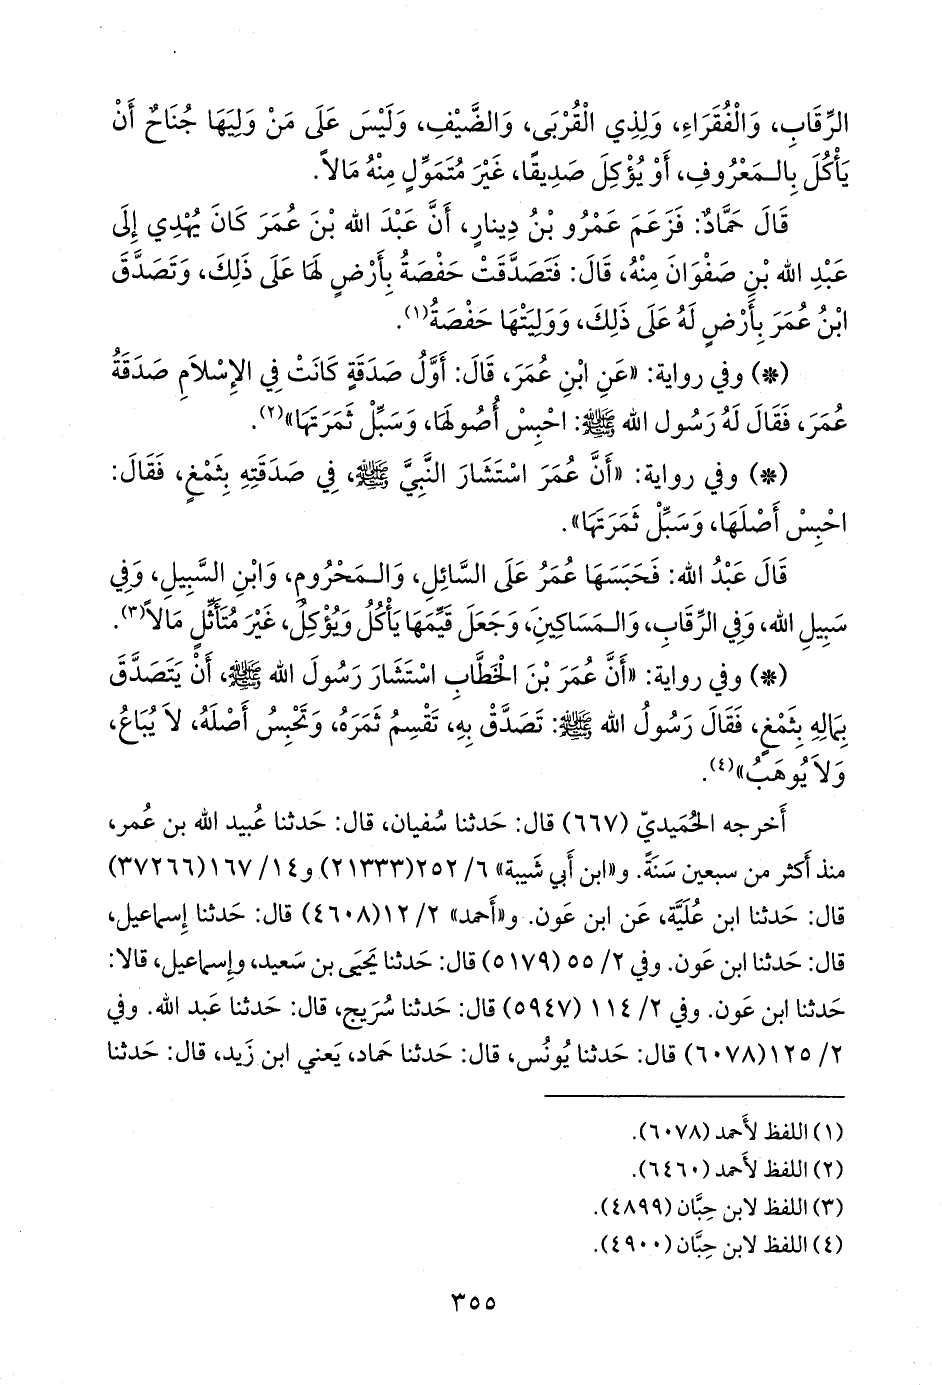 الرِّقَابِ، وَالْفُقَرَاءِ، وَلِذِي الْقُرْبَى، وَالضَّيْفِ، وَلَيْسَ عَلَى مَنْ وَلِيَهَا جُنَاحٌ أَنْ
يَأْكُلَ بِالْمَعْرُوفِ، أَوْ يُؤْكِلَ صَدِيقًا، غَيْرَ مُتَمَوِّلٍ مِنْهُ مَالاً.
قَالَ حَمَّادٌ: فَزَعَمَ عَمْرُو بْنُ دِينَارٍ، أَنَّ عَبْدَ الله بْنَ عُمَرَ كَانَ يُهْدِي إِلَى
عَبْدِ الله بْنِ صَفْوَانَ مِنْهُ، قَالَ: فَتَصَدَّقَتْ حَفْصَةُ بِأَرْضٍ لَهَا عَلَى ذَلِكَ، وَتَصَدَّقَ
ابْنُ عُمَرَ بِأَرْضٍ لَهُ عَلَى ذَلِكَ، وَوَلِيَتْهَا حَفْصَةُ(١).
(*) وفي رواية: «عَنِ ابْنِ عُمَرَ، قَالَ: أَوَّلُ صَدَقَةٍ كَانَتْ فِي الإِسْلاَمِ صَدَقَةُ
عُمَرَ، فَقَالَ لَهُ رَسُول الله ﷺ: احْبِسْ أُصُولَهَا، وَسَبِّلْ ثَمَرَتَهَا»(٢).
(*) وفي رواية: «أَنَّ عُمَرَ اسْتَشَارَ النَّبِيَّ ﷺ، فِي صَدَقَتِهِ بِثَمْغٍ، فَقَالَ:
احْبِسْ أَصْلَهَا، وَسَبِّلْ ثَمَرَتَهَا».
قَالَ عَبْدُ الله: فَحَبَسَهَا عُمَرُ عَلَى السَّائِلِ، وَالْمَحْرُومِ، وَابْنِ السَّبِيلِ، وَفِي
سَبِيلِ الله، وَفِي الرِّقَابِ، وَالْمَسَاكِينِ، وَجَعَلَ قَيِّمَهَا يَأْكُلُ وَيُؤْكِلُ، غَيْرَ مُتَأَثِّلٍ مَالاً»(٣).
(*) وفي رواية: «أَنَّ عُمَرَ بْنَ الْخَطَّابِ اسْتَشَارَ رَسُولَ الله ﷺ، أَنْ يَتَصَدَّقَ
بِمَالِهِ بِثَمْغٍ، فَقَالَ رَسُولُ الله ﷺ: تَصَدَّقْ بِهِ، تَقْسِمُ ثَمَرَهُ، وَتَحْبِسُ أَصْلَهُ، لاَ يُبَاعُ،
وَلاَ يُوهَبُ»(٤).
أَخرجه الحُمَيديّ (٦٦٧) قال: حَدثنا سُفيان، قال: حَدثنا عُبيد الله بن عُمر،
منذ أَكثر من سبعين سَنَةً. و«ابن أَبي شَيبة» ٦/ ٢٥٢(٢١٣٣٣) و١٤/ ١٦٧(٣٧٢٦٦)
قال: حَدثنا ابن عُلَيَّة، عَن ابن عَون. و«أَحمد» ٢/ ١٢(٤٦٠٨) قال: حَدثنا إِسماعيل،
قال: حَدثنا ابن عَون. وفي ٢/ ٥٥ (٥١٧٩) قال: حَدثنا يَحيَى بن سَعيد، وإِسماعيل، قالا:
حَدثنا ابن عَون. وفي ٢/ ١١٤ (٥٩٤٧) قال: حَدثنا سُرَيج، قال: حَدثنا عَبد الله. وفي
٢/ ١٢٥(٦٠٧٨) قال: حَدثنا يُونُس، قال: حَدثنا حَماد، يَعني ابن زَيد، قال: حَدثنا
(١) اللفظ لأَحمد (٦٠٧٨).
(٢) اللفظ لأَحمد (٦٤٦٠).
(٣) اللفظ لابن حِبَّان (٤٨٩٩).
(٤) اللفظ لابن حِبَّان (٤٩٠٠).
٣٥٥